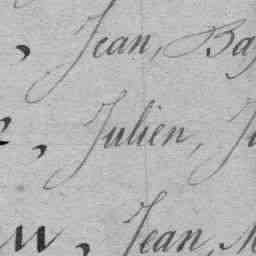 , Jean, Ba
, Julien, J
, Jean, M